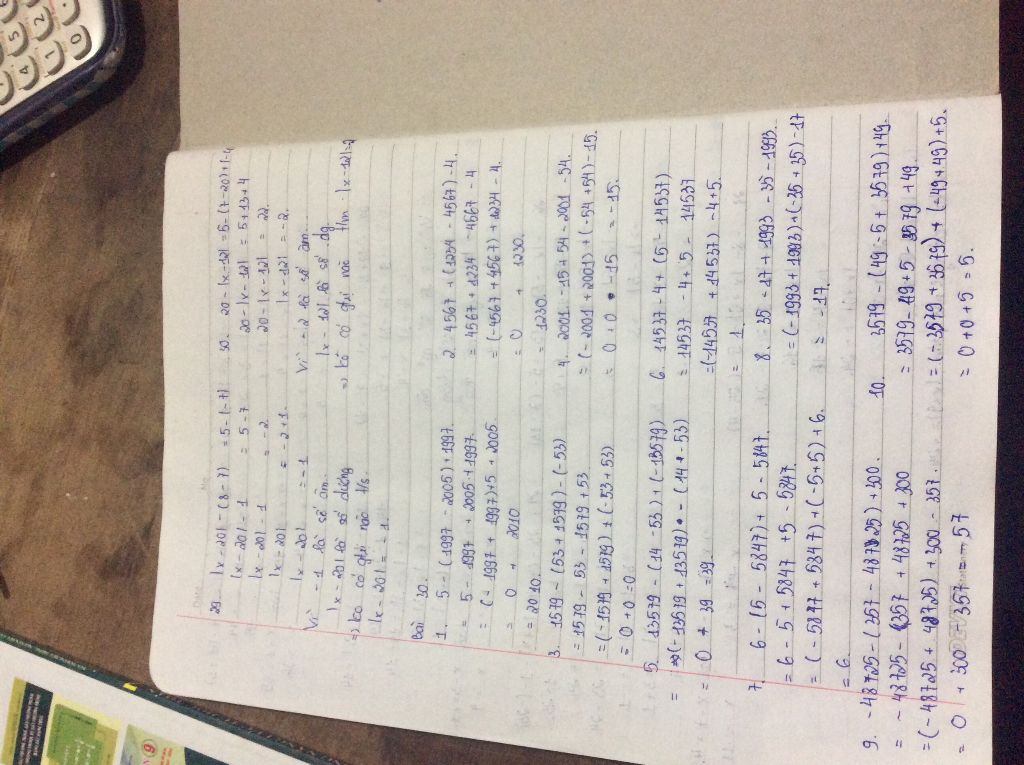 29. |x - 20| - (8 - 7) = 5 - (-7)
|x - 20| - 1 = 5 - 7
|x - 20| - 1 = - 2.
|x - 20| = - 2 + 1.
|x - 20| = - 1
Vì - 1 là số âm.
|x - 20| là số dương
=> ko có giá trị nào t/s.
|x - 20| = - 1.
30. 20 - |x - 12| = 5 - (7 - 20) + |-4|
20 - |x - 12| = 5 + 13 + 4
20 - |x - 12| = 22.
|x - 12| = - 2.
Vì - 2 là số âm.
|x - 12| là số dg
=> ko có giá nào t/m |x - 12| = -2
bài 30.
1. 5 - (1997 - 2005) + 1997.
= 5 - 1997 + 2005 + 1997.
= (- 1997 + 1997) + 5 + 2005
= 0 + 2010
= 2010.
2. 4567 + (1234 - 4567) - 4.
= 4567 + 1234 - 4567 - 4
= (-4567 + 4567) + 1234 - 4.
= 0 + 1230.
= 1230.
3. 1579 - (53 + 1579) - (- 53)
= 1579 - 53 - 1579 + 53
= (- 1579 + 1579) + (- 53 + 53)
= 0 + 0 = 0
4. 2001 - 15 + 54 - 2001 - 54.
= (- 2001 + 2001) + (- 54 + 54) - 15.
= 0 + 0 - 15 = - 15.
5. 13579 - (14 - 53) + (- 13579)
= (- 13579 + 13579) - (14 - 53)
= 0 + 39 = 39.
6. 14537 - 4 + (5 - 14537)
= 14537 - 4 + 5 - 14537
= (-14537 + 14537) - 4 + 5.
= 1.
7. 6 - (5 - 5847) + 5 - 5847.
= 6 - 5 + 5847 + 5 - 5847.
= (- 5847 + 5847) + (- 5 + 5) + 6.
= 6.
8. - 35 - 17 + 1993 - 35 - 1993.
= (- 1993 + 1993) + (- 35 + 35) - 17
= - 17.
9. - 48725 - (357 - 48725) + 300.
= - 48725 - 357 + 48725 + 300
= (- 48725 + 48725) + 300 - 357.
= 0 + 300 - 357 = - 57
10. 3579 - (49 - 5 + 3579) + 49.
= 3579 - 49 + 5 - 3579 + 49.
= (- 3579 + 3579) + (- 49 + 49) + 5.
= 0 + 0 + 5 = 5.